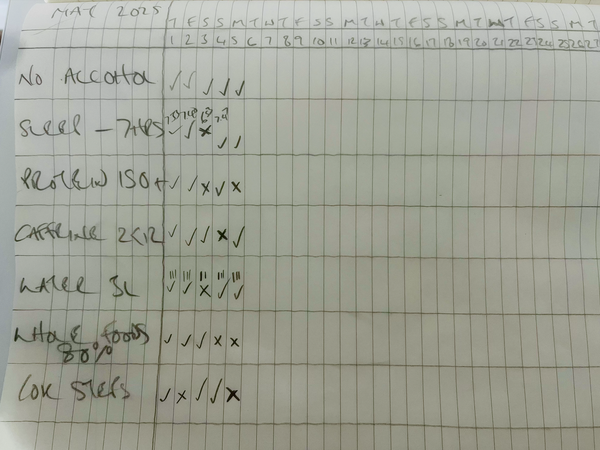 MAY 2025 T F S S M T W T F S S M T W T F S S M T W T F S S M T
1 2 3 4 5 6 7 8 9 10 11 12 13 14 15 16 17 18 19 20 21 22 23 24 25 26 27
NO ALCOHOL ✓ ✓ ✓ ✓ ✓
SLEEP - 7HRS ✓ ✓ × ✓ ✓
PROTEIN 150+ ✓ ✓ × ✓ ×
CAFFEINE 2<12 ✓ ✓ ✓ × ✓
||| ||| || ||| |||
WATER 3L ✓ ✓ × ✓ ✓
WHOLE FOODS ✓ ✓ ✓ × ×
80%
10K STEPS ✓ × ✓ ✓ ×